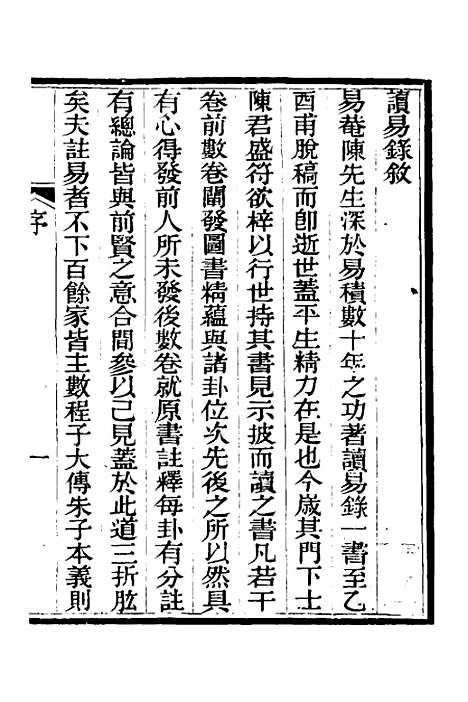 讀易錄敘
易菴陳先生深於易積數十年之功著讀易錄一書至乙
酉甫脫稿而卽逝世蓋平生精力在是也今歲其門下士
陳君盛符欲梓以行世持其書見示披而讀之書凡若干
卷前數卷闡發圖書精蘊與諸卦位次先後之所以然具
有心得發前人所未發後數卷就原書註釋每卦有分註
有總論皆與前賢之意合間參以己見蓋於此道三折肱
矣夫註易者不下百餘家皆主數程子大傳朱子本義則
序
一